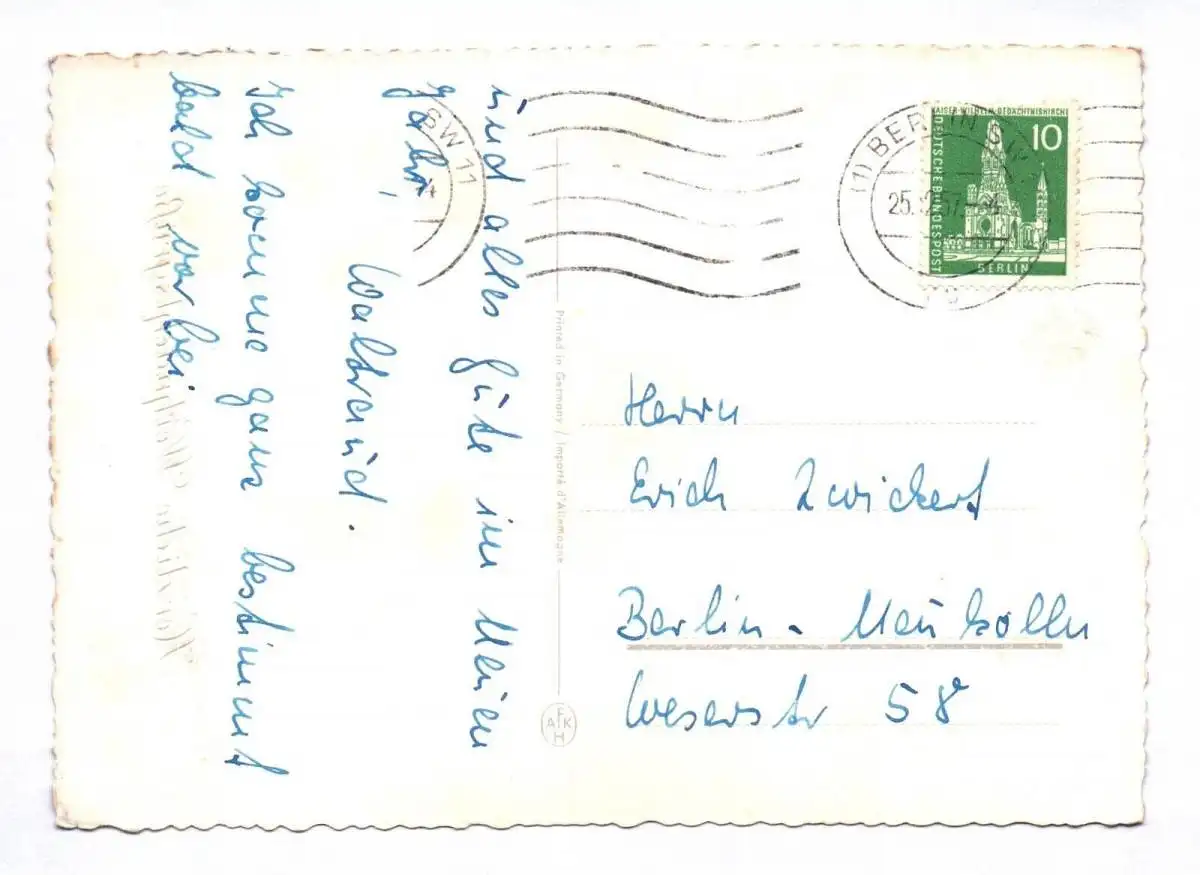 und alles Gute im Neuen
Jahr,
Waltraud.
Ich komme ganz bestimmt
bald vorbei
SW 11
(1) BERLIN SW
25. 57.
KAISER-WILHELM-GEDÄCHTNISKIRCHE
DEUTSCHE BUNDESPOST
10
BERLIN
Printed in Germany / Importé d'Allemagne
AFKH
Herrn
Erich Zwickert
Berlin-Neukölln
Weserstr 58